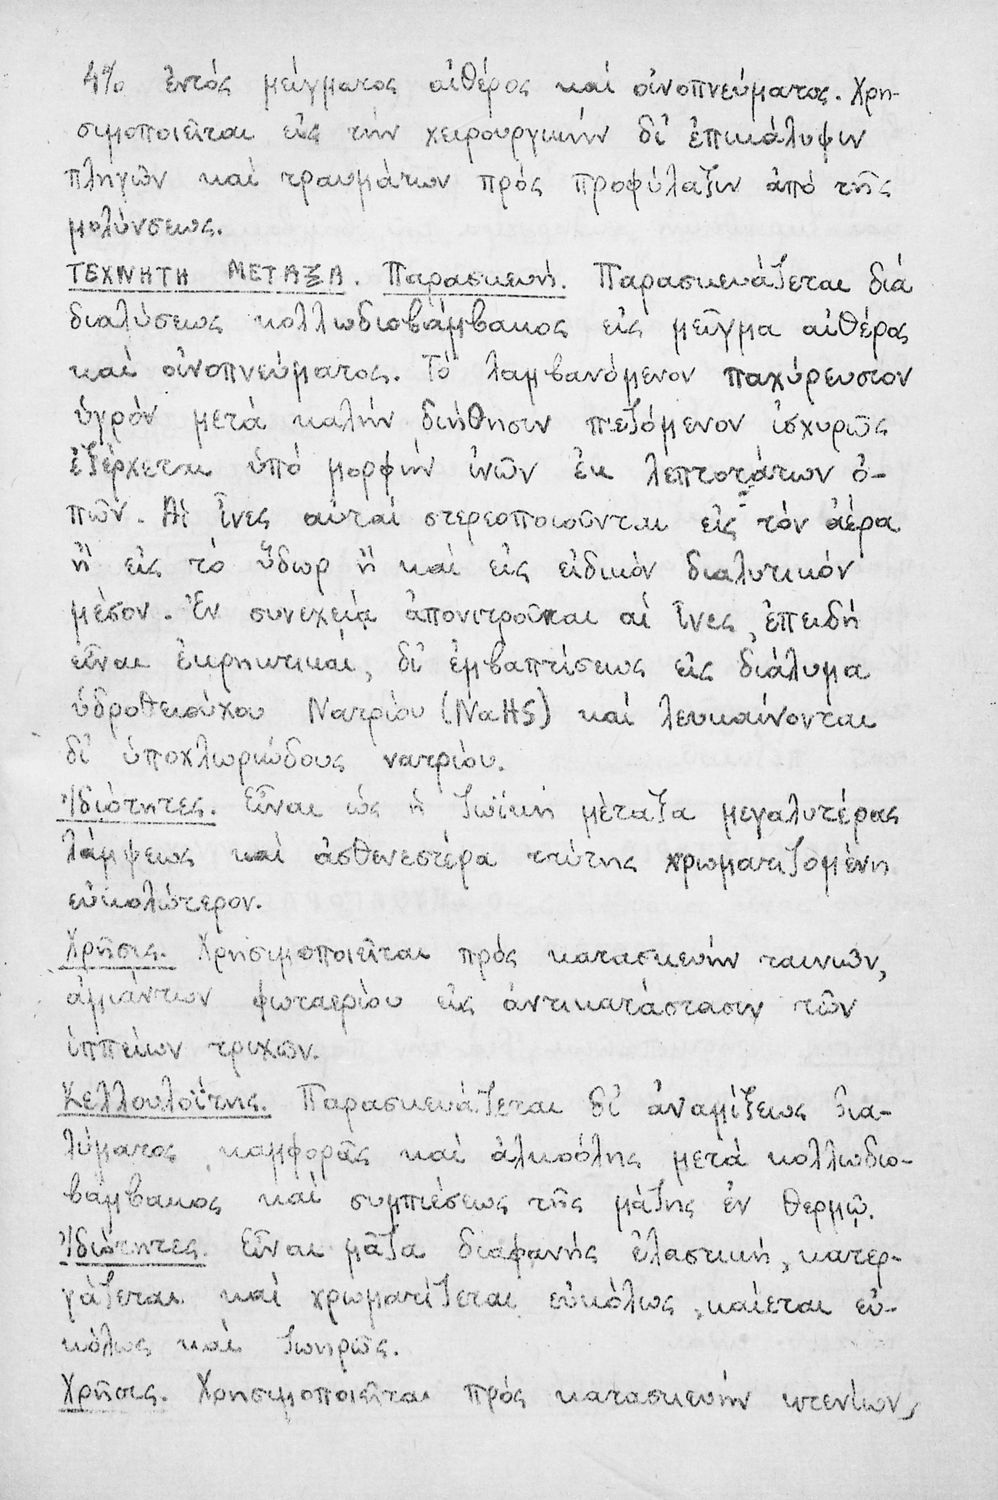 4% ἐντός μείγματος αἰθέρος καί οἰνοπνεύματος. Χρη-
σιμοποιεῖται εἰς τήν χειρουργικήν δι' ἐπικάλυψιν
πληγῶν καί τραυμάτων πρός προφύλαξιν ἀπό τῆς
μολύνσεως.
ΤΕΧΝΗΤΗ ΜΕΤΑΞΑ. Παρασκευή. Παρασκευάζεται διά
διαλύσεως κολλωδιοβάμβακος εἰς μεῖγμα αἰθέρος
καί οἰνοπνεύματος. Τό λαμβανόμενον παχύρευστον
ὑγρόν μετά καλήν διήθησιν πιεζόμενον ἰσχυρῶς
ἐξέρχεται ὑπό μορφήν ἰνῶν ἐκ λεπτοτάτων ὀ-
πῶν. Αἱ ἶνες αὐταί στερεοποιοῦνται εἰς τόν ἀέρα
ἤ εἰς τό ὕδωρ ἤ καί εἰς εἰδικόν διαλυτικόν
μέσον. Ἐν συνεχείᾳ ἀπονιτροῦνται αἱ ἶνες, ἐπειδή
εἶναι ἐκρηκτικαί, δι' ἐμβαπτίσεως εἰς διάλυμα
ὑδροθειούχου Νατρίου (NaHS) καί λευκαίνονται
δι' ὑποχλωριώδους νατρίου.
Ἰδιότητες. Εἶναι ὡς ἡ ζωϊκή μέταξα μεγαλυτέρας
λάμψεως καί ἀσθενεστέρα ταύτης χρωματιζομένη
εὐκολώτερον.
Χρῆσις. Χρησιμοποιεῖται πρός κατασκευήν ταινιῶν,
ἀμιάντων φωταερίου εἰς ἀντικατάστασιν τῶν
ἱππείων τριχῶν.
Κελλουλοΐτης. Παρασκευάζεται δι' ἀναμίξεως δια-
λύματος καμφορᾶς καί ἀλκοόλης μετά κολλωδιο-
βάμβακος καί συμπιέσεως τῆς μάζης ἐν θερμῷ.
Ἰδιότητες. Εἶναι μᾶζα διαφανής ἐλαστική, κατερ-
γάζεται καί χρωματίζεται εὐκόλως, καίεται εὐ-
κόλως καί ζωηρῶς.
Χρῆσις. Χρησιμοποιεῖται πρός κατασκευήν κτενίων,